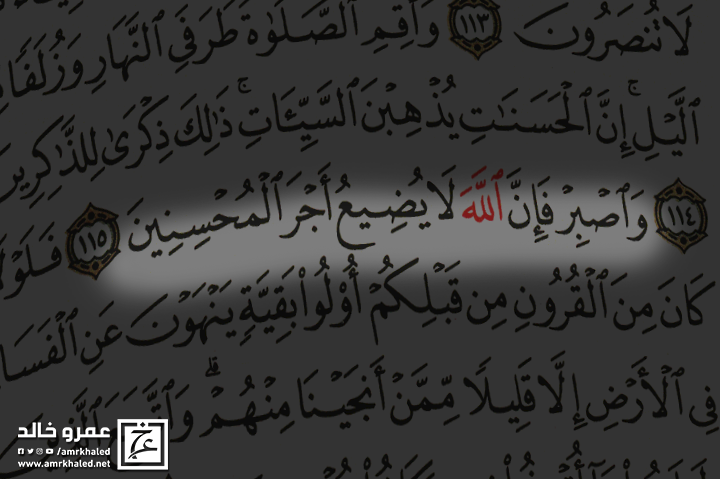 لَا تُنصَرُونَ ١١٣ وَأَقِمِ ٱلصَّلَوٰةَ طَرَفَيِ ٱلنَّهَارِ وَزُلَفًا
ٱلَّيْلِ ۚ إِنَّ ٱلْحَسَنَٰتِ يُذْهِبْنَ ٱلسَّيِّـَٔاتِ ۚ ذَٰلِكَ ذِكْرَىٰ لِلذَّٰكِرِينَ
١١٤ وَٱصْبِرْ فَإِنَّ ٱللَّهَ لَا يُضِيعُ أَجْرَ ٱلْمُحْسِنِينَ ١١٥ فَلَوْلَا
كَانَ مِنَ ٱلْقُرُونِ مِن قَبْلِكُمْ أُو۟لُوا۟ بَقِيَّةٍ يَنْهَوْنَ عَنِ ٱلْفَسَا
فِي ٱلْأَرْضِ إِلَّا قَلِيلًا مِّمَّنْ أَنجَيْنَا مِنْهُمْ ۗ
عمرو خالد
/amrkhaled
www.amrkhaled.net